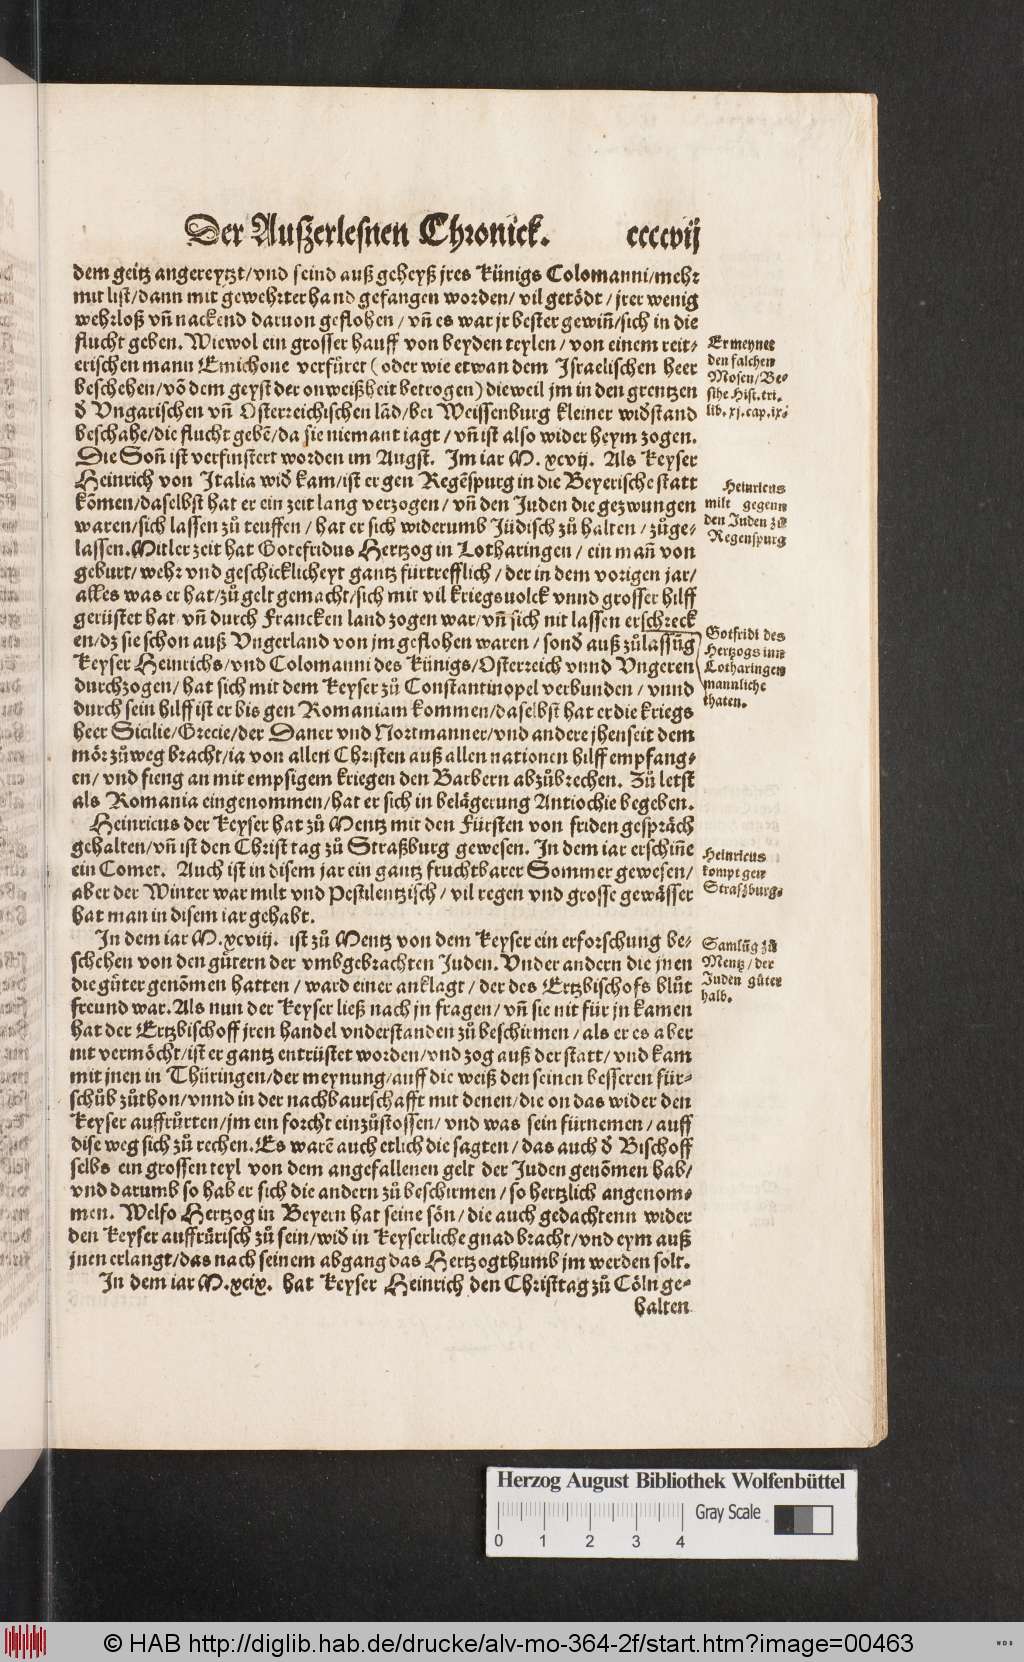 Der Auszerlesnen Chronick. ccccvij
dem geitz angereytzt/vnd seind auß geheyß jres Künigs Colomanni/mehr
mit list/dann mit gewehrter hand gefangen worden/ vil getödt / jrer wenig
wehrloß vñ nackend daruon geflohen / vñ es war jr bester gewiñ/sich in die
flucht geben. Wiewol ein grosser hauff von beyden teylen / von einem reit-
erischen mann Emichone verfüret ( oder wie etwan dem Israelischen heer
beschehen/ võ dem geyst der onweißheit betrogen) dieweil jm in den grentzen
d̄ Vngarischen vñ Osterreichischen lãd/bei Weissenburg kleiner widstand
beschahe/die flucht gebẽ/da sie niemant iagt / vñ ist also wider heym zogen.
Die Soñ ist verfinstert worden im Augst. Im iar M. xcvij. Als Keyser
Heinrich von Italia wid̄ kam/ist er gen Regẽspurg in die Beyerische statt
kõmen/daselbst hat er ein zeit lang verzogen / vñ den Juden die gezwungen
waren/sich lassen zů teuffen / hat er sich widerumb Jüdisch zů halten / zůge-
lassen. Mitler zeit hat Gotefridus Hertzog in Lotharingen / ein mañ von
geburt/ wehr vnd geschicklicheyt gantz fürtrefflich / der in dem vorigen jar/
alles was er hat/zů gelt gemacht/sich mit vil kriegsuolck vnnd grosser hilff
gerüstet hat vñ durch Francken land zogen war/vñ sich nit lassen erschreck
en/dz sie schon auß Vngerland von jm geflohen waren / sond̄ auß zůlassũg
Keyser Heinrichs/vnd Colomanni des Künigs/Osterreich vnnd Vngeren
durchzogen/ hat sich mit dem Keyser zů Constantinopel verbunden / vnnd
durch sein hilff ist er bis gen Romaniam kommen/daselbst hat er die kriegs
heer Sicilie/Grecie/der Daner vnd Nortmanner/vnd andere jhenseit dem
mör zůweg bracht/ia von allen Christen auß allen nationen hilff empfang-
en/ vnd fieng an mit empsigem kriegen den Barbern abzůbrechen. Zů letst
als Romania eingenommen/hat er sich in belägerung Antiochie begeben.
Heinricus der Keyser hat zů Mentz mit den Fürsten von friden gespräch
gehalten/vñ ist den Christ tag zů Straßburg gewesen. In dem iar erschiñe
ein Comet. Auch ist in disem jar ein gantz fruchtbarer Sommer gewesen/
aber der Winter war milt vnd Pestilentzisch / vil regen vnd grosse gewässer
hat man in disem iar gehabt.
In dem iar M.xcviij. ist zů Mentz von dem Keyser ein erforschung be-
schehen von den gütern der vmbgebrachten Juden. Vnder andern die jnen
die güter genõmen hatten / ward einer anklagt / der des Ertzbischofs blůt
freund war. Als nun der Keyser ließ nach jn fragen/ vñ sie nit für jn kamen
hat der Ertzbischoff jren handel vnderstanden zů beschirmen / als er es aber
nit vermöcht/ist er gantz entrüstet worden/vnd zog auß der statt/ vnd kam
mit jnen in Thüringen/der meynung/auff die weiß den seinen besseren für-
schůb zůthon/vnnd in der nachbaurschafft mit denen/die on das wider den
Keyser auffrůrten/jm ein forcht einzůstossen/ vnd was sein fürnemen / auff
dise weg sich zů rechen. Es warẽ auch etlich die sagten / das auch d̄ Bischoff
selbs ein grossen teyl von dem angefallenen gelt der Juden genõmen hab/
vnd darumb so hab er sich die andern zů beschirmen / so hertzlich angenom-
men. Welfo Hertzog in Beyern hat seine sön / die auch gedachtenn wider
den Keyser auffrůrisch zů sein/wid̄ in Keyserliche gnad bracht/vnd eym auß
jnen erlangt/das nach seinem abgang das Hertzogthumb jm werden solt.
In dem iar M.xcix. hat Keyser Heinrich den Christtag zů Cöln ge-
halten
Er meynet
den falschen
Mosen/Be-
sihe Hist.tri.
lib.xj.cap.ix.
Heinricus
milt gegenn
den Juden zů
Regenspurg
Gotfridi des
Hertzogs inn
Lotharingen
mannliche
thaten.
Heinricus
kompt gen
Straszburg.
Samlũg zů
Mentz / der
Juden güter
halb.
Herzog August Bibliothek Wolfenbüttel
0 1 2 3 4 Gray Scale
© HAB http://diglib.hab.de/drucke/alv-mo-364-2f/start.htm?image=00463